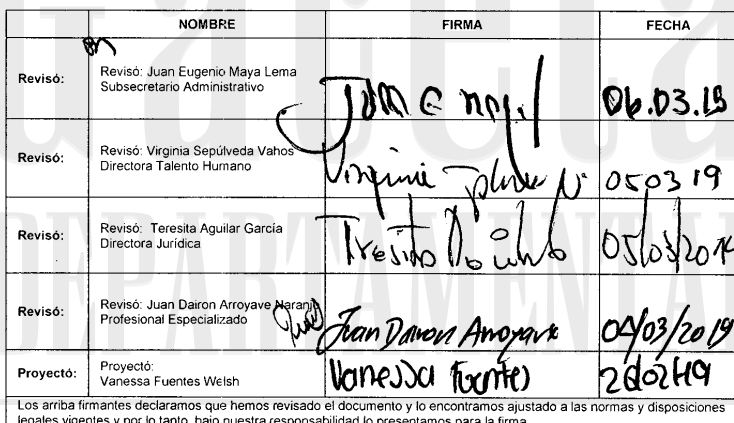 NOMBRE FIRMA FECHA
Revisó: Revisó: Juan Eugenio Maya Lema
Subsecretario Administrativo
06.03.19
Revisó: Revisó: Virginia Sepúlveda Vahos
Directora Talento Humano
Virginia 050319
Revisó: Revisó: Teresita Aguilar García
Directora Jurídica
05/03/201
Revisó: Revisó: Juan Dairon Arroyave Naranjo
Profesional Especializado
Juan Dairon Arroyave 04/03/2019
Proyectó: Proyectó:
Vanessa Fuentes Welsh
Vanessa Fuentes
Los arriba firmantes declaramos que hemos revisado el documento y lo encontramos ajustado a las normas y disposiciones
legales vigentes y por lo tanto, bajo nuestra responsabilidad lo presentamos para la firma.